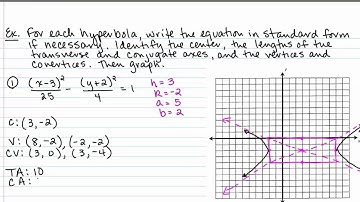 Ex. For each hyperbola, write the equation in standard form
if necessary. Identify the center, the lengths of the
transverse and conjugate axes, and the vertices and
covertices. Then graph.
① (x-3)²/25 - (y+2)²/4 = 1
h = 3
k = -2
a = 5
b = 2
C: (3, -2)
V: (8, -2), (-2, -2)
CV: (3, 0), (3, -4)
TA: 10
CA: